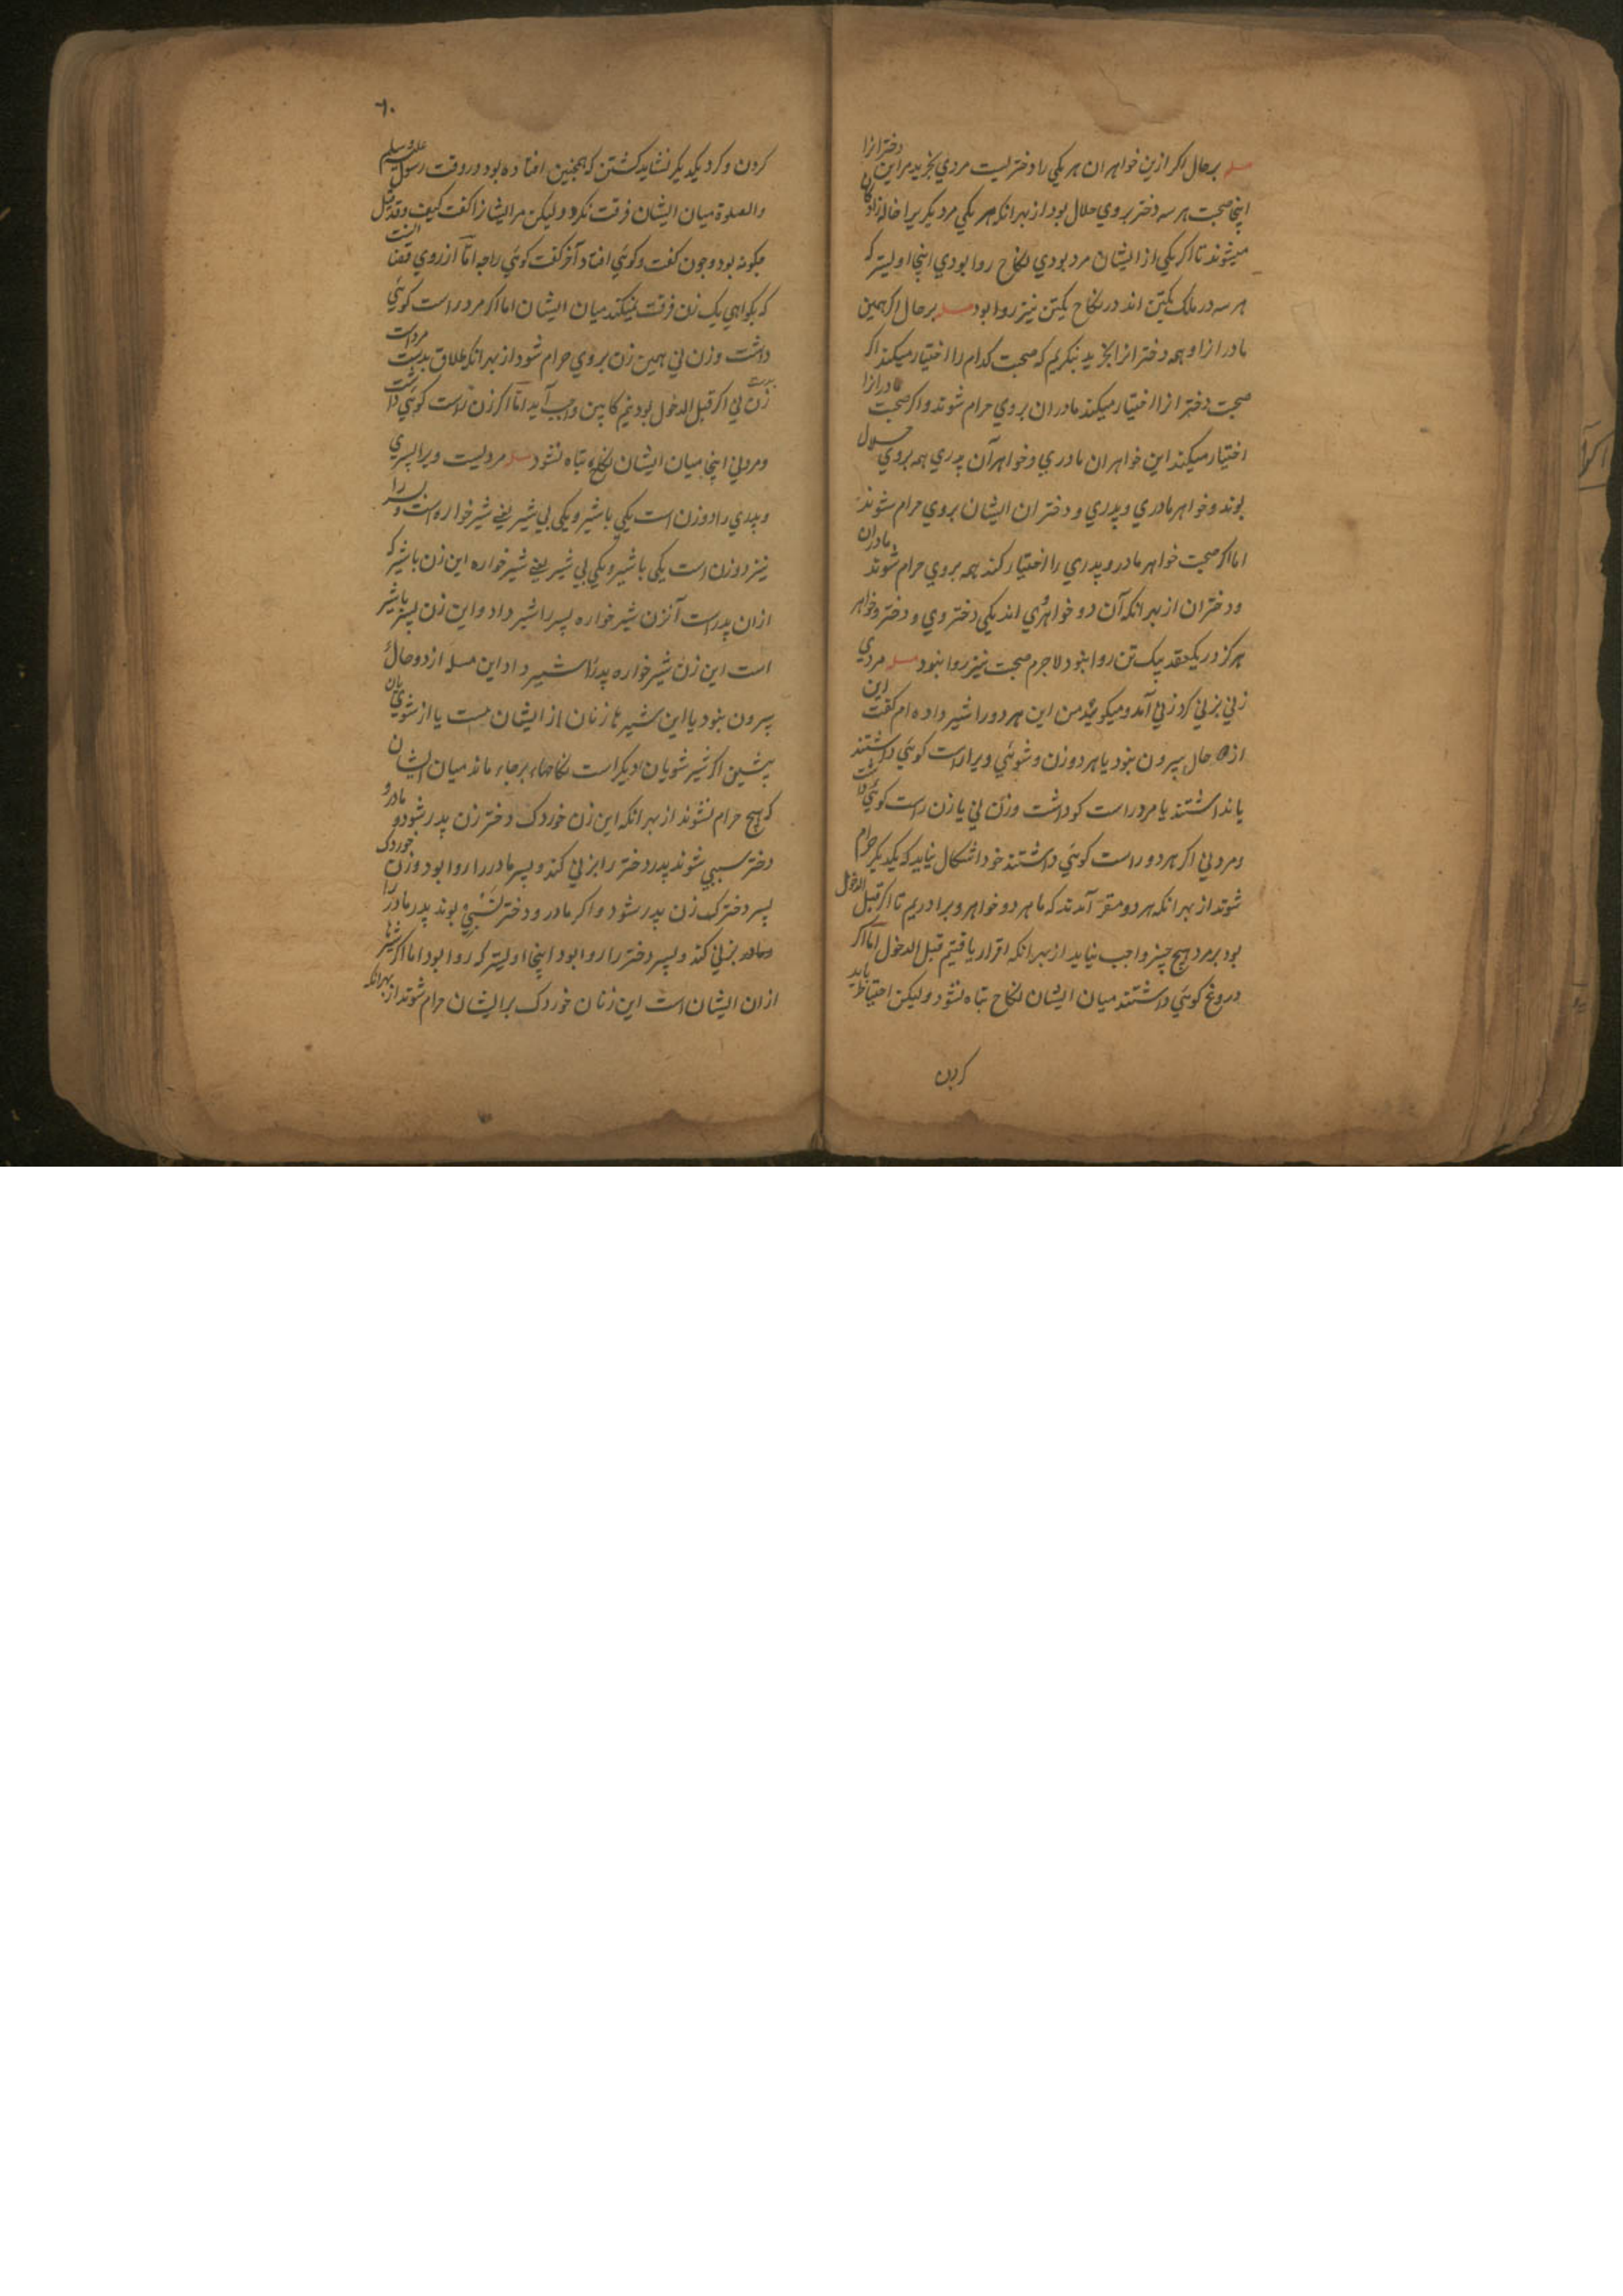 مسله برحال اکر ازین خواهران هر یکی را دختریست مردی بخرید مر این دخترانرا
اینجا صحبت هر سه دختر بروی حلال بود از بهر انکه هر یکی مر دیکریرا خاله زادکان
میشوند تا اکر یکی از ایشان مرد بودی نکاح روا بودی اینجا اولیتر که
هر سه در ملک یکتن اند در نکاح یکتن نیز روا بود مسله برحال اکر همین
مادرانرا و همه دخترانرا بخرید بنکریم که صحبت کدام را اختیار میکند اکر
صحبت دخترانرا اختیار میکند مادران بروی حرام شوند و اکر صحبت مادرانرا
اختیار میکند این خواهران مادری و خواهرآن پدری همه بروی حلال
بوند و خواهر مادری و پدری و دختران ایشان بروی حرام شوند
اما اکر صحبت خواهر مادر و پدری را اختیار کند همه بروی حرام شوند مادران
و دختران از بهر انکه آن دو خواهر وی اند یکی دختر وی و دختر و خواهر
هرکز در یکعقد بیک تن روا نبود لاجرم صحبت نیز روا نبود مسله مردی
زنی بزنی کرد زنی آمد و میکوید من این هر دو را شیر داده ام کفت این
از حال بیرون نبود یا هر دو زن و شوئی ویرا راست کوئی داشتند
یا نداشتند یا مرد راست کو داشت و زن نی یا زن راست کوئی داشت
و مرد نی اکر هر دو راست کوئی داشتند خود اشکال نیاید که یکدیکر حرام
شوند از بهر انکه هر دو مقر آمدند که ما هر دو خواهر و برادریم تا اکر قبل الدخول
بود بر مرد هیچ چیز واجب نیاید از بهر انکه اقرار یافتیم قبل الدخول اما اکر
دروغ کوئی داشتند میان ایشان نکاح تباه نشود ولیکن احتیاط باید
کردن
۶۰
کردن و کرد یکدیکر نشاید کشتن که همچنین افتاده بود در وقت رسول علیه وسلم
والصلوة میان ایشان فرقت نکرد ولیکن مر ایشانرا کفت کیف وقد قیل
چکونه بود و چون کفت و کوئی افتاد آخر کفت کوئی راچه اما از روی قضا
که بکواهی یک زن فرقت نیفکند میان ایشان اما اکر مرد راست کوئی
داشت و زن نی همین زن بروی حرام شود از بهر انکه طلاق بدست مردست
زن نی اکر قبل الدخول بود نیم کابین واجب آید اما اکر زن راست کوئی داشت
و مرد نی اینجا میان ایشان نکاح تباه نشود مسله مردیست ویرا پسری
و پدری را دو زن است یکی باشیر و یکی بی شیر یعنی شیرخواره است و پسر را
نیز دو زن است یکی باشیر و یکی بی شیر یعنی شیرخواره این زن باشیر که
ازان پدر است آنزن شیرخواره پسر را شیر داد و این زن پسر باشیر
است این زن شیرخواره پدر را شیر داد این مسله از دو حال
بیرون نبود یا این شیرها زنان از ایشان هست یا از شویان
پیشین اکر شیر شویان دیکر است نکاحها برجاء ماند میان ایشان
که هیچ حرام نشوند از بهر انکه این زن خوردک دختر زن پدر شود و مادر و
دختر سببی شوند پدر دختر را بزنی کند و پسر مادر را روا بود و زن خوردک
پسر دخترک زن پدر شود و اکر مادر و دختر نسبی بوند پدر مادر را
بزنی کند و پسر دختر را روا بود اینجا اولیتر که روا بود اما اکر شیرها
ازان ایشان است این زنان خوردک بر ایشان حرام شوند از بهر انکه